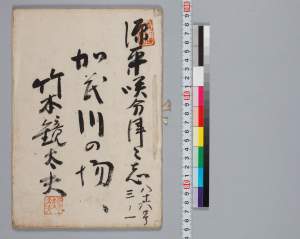 源平咲分津々志 八十八号
三ノ一
加茂川の場
竹本鏡太夫